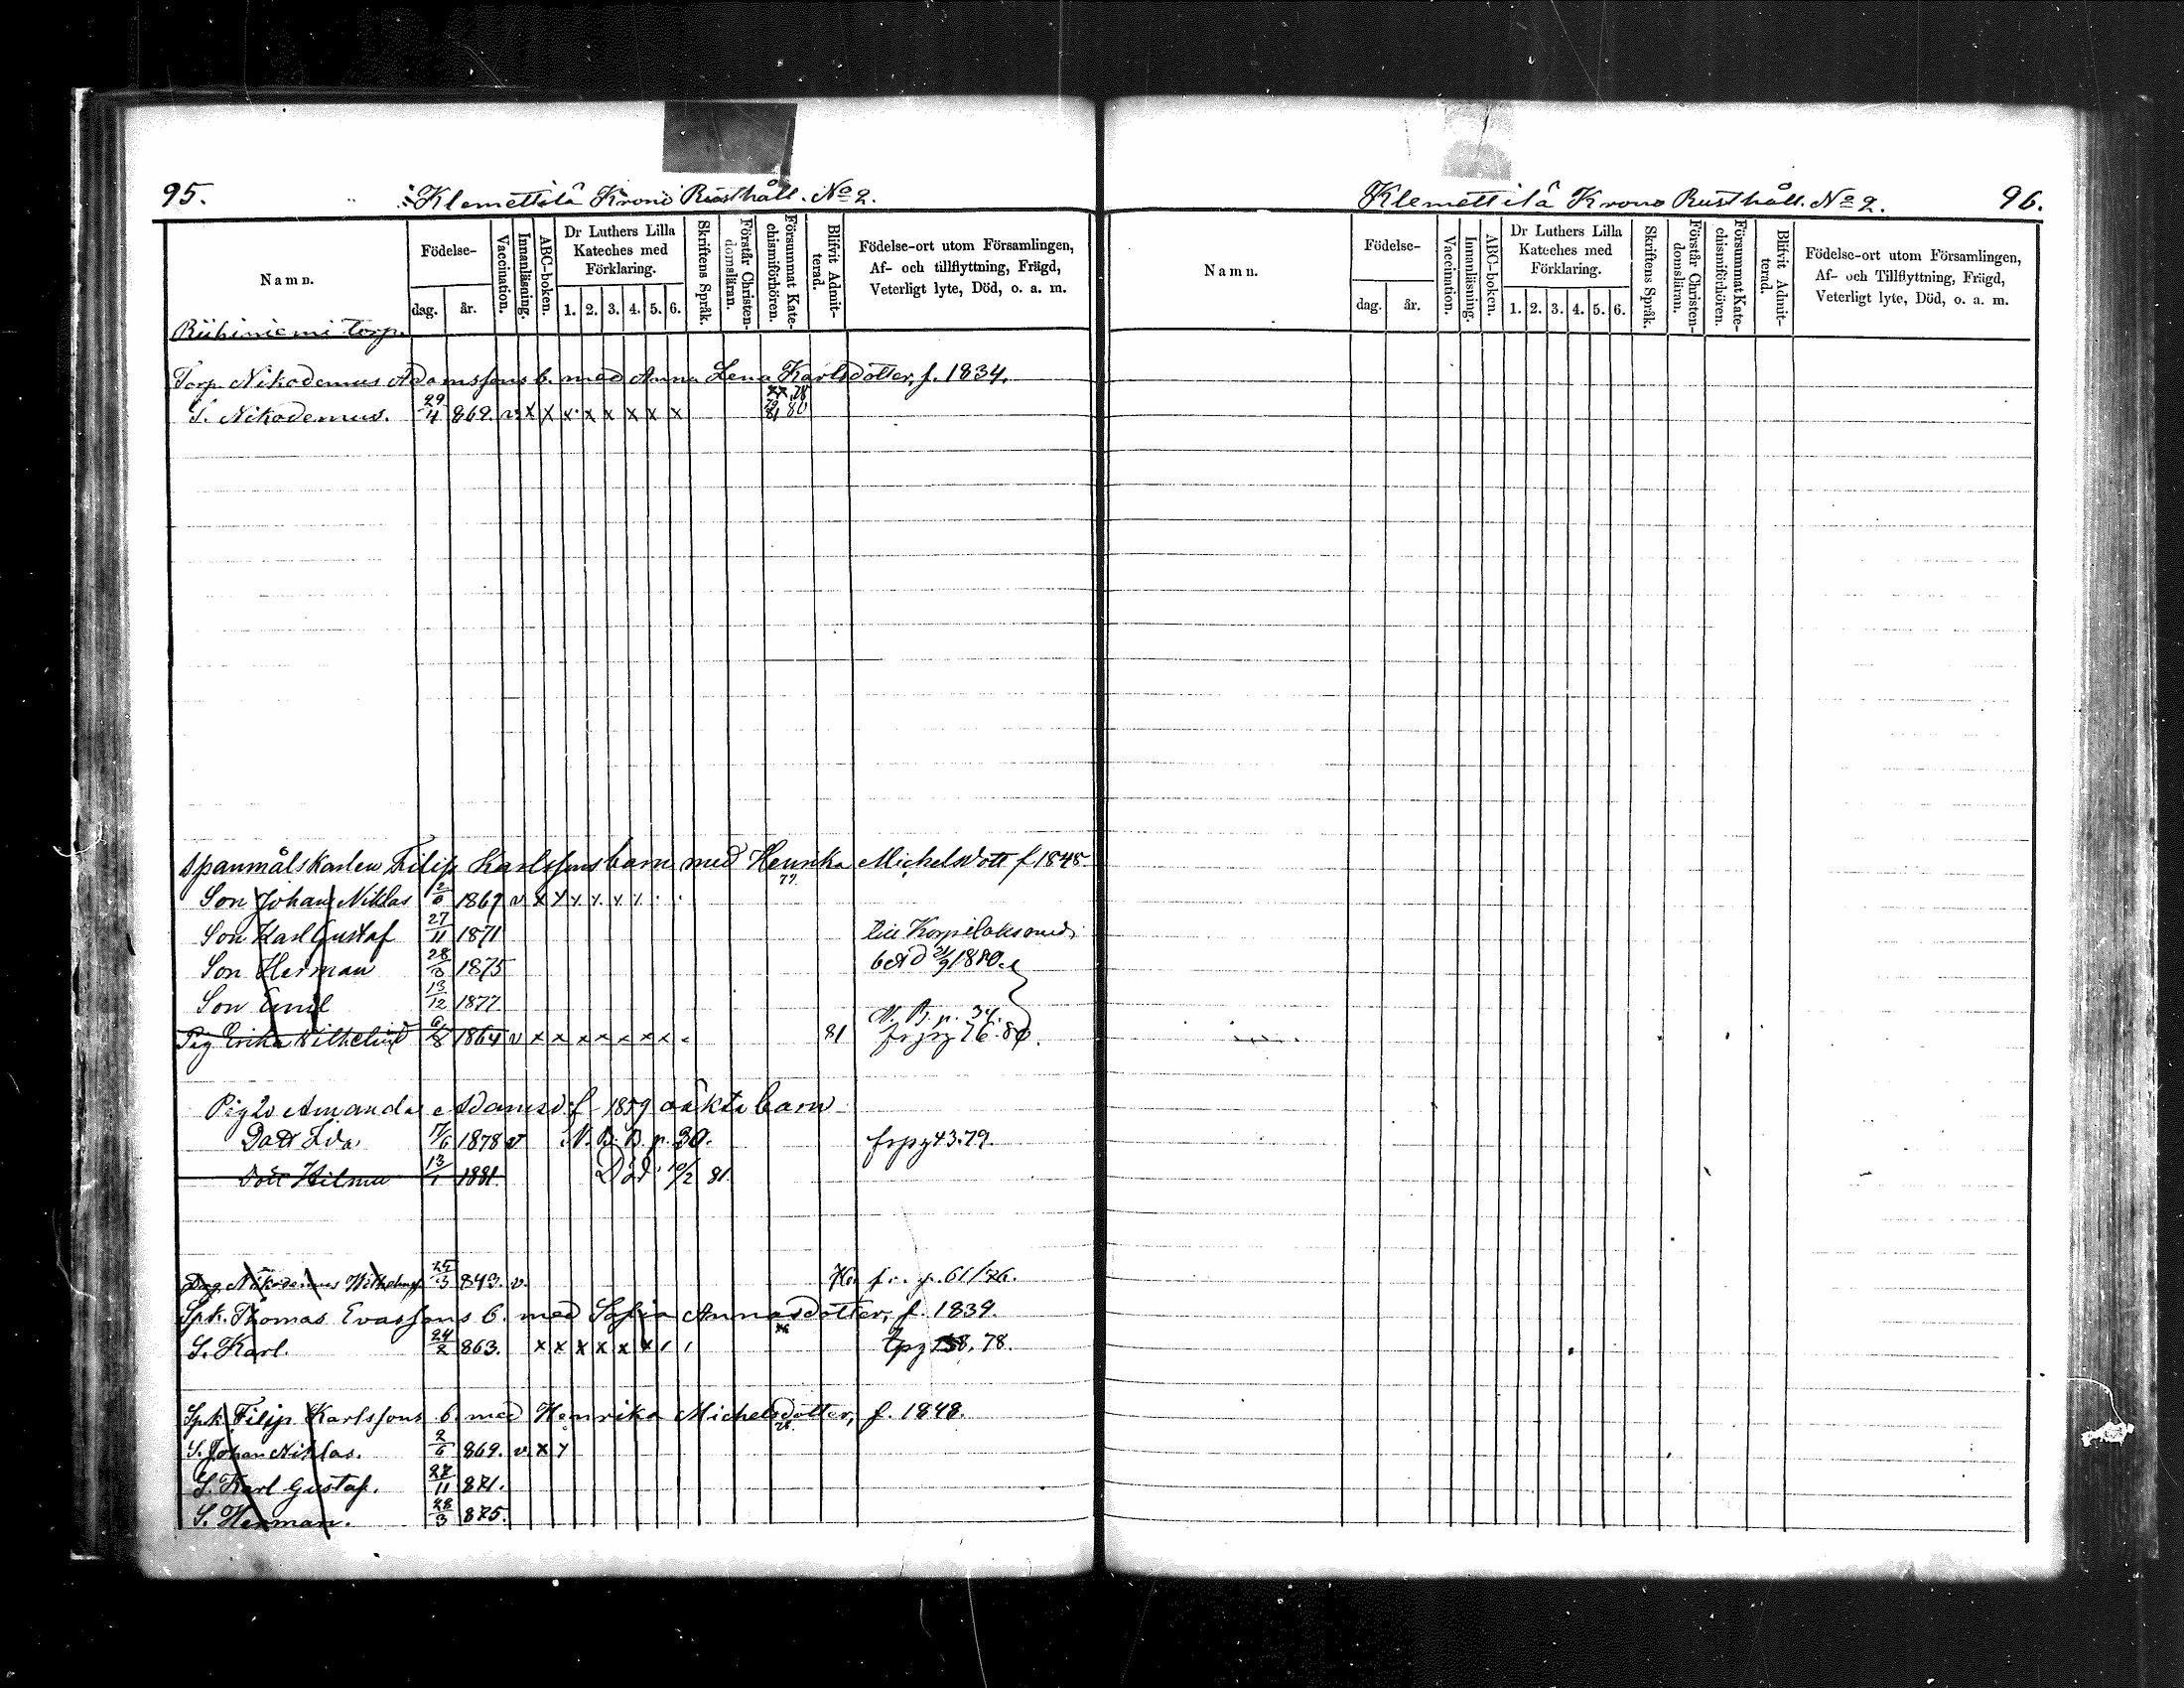 95.
Klemettilä Krono Rusthåll. No 2.
Namn.
Födelse-
dag.
år.
Vaccination.
Innanläsning.
ABC-boken.
Dr Luthers Lilla Kateches med Förklaring.
1. 2. 3. 4. 5. 6.
Skriftens Språk.
Förstår Christendomsläran.
Försummat Katechismiförhören.
Blifvit Admitterad.
Födelse-ort utom Församlingen,
Af- och tillflyttning, Frägd,
Veterligt lyte, Död, o. a. m.
Riihiniemi torp.
Torp. Nikodemus Adamssons b. med Anna Lena Karlsdotter, f. 1834.
77, 78
S. Nikodemus. 29/4 862. v x x x x x x x x 79 80 81
Spanmålskarlen Filip Karlssons barn med Henrika Michelsdott f 1848
79
Son Johan Niklas 2/6 1869 v x
Son Karl Gustaf 27/11 1871 till Korpilaks med
Son Herman 28/3 1875 1880
Son Emil 13/12 1877
N. B. p. 34.
Pig Erika Vilhelmsd 6/8 1864 v x x x x x x x 81 frpg 76.80.
Pig Amanda Adamsd. f 1859 oäkta barn
Dott Ida 1878 v N. B. B. p. 30. frpg 43.79.
Dott Hilma 13/1 1881. Död 10/2 81.
Drg. Nikodemus Wilhelmss 25/3 843. v. fr. p. 61/76.
Spk. Thomas Evassons b. med Sofia Annasdotter, f. 1839.
S. Karl. 24/2 863. x x x x x x / / tpg 158, 78.
Spk. Filip Karlssons b. med Henrika Michelsdotter, f. 1848.
S. Johan Niklas. 2/6 869. v. x
S. Karl Gustaf. 27/11 871.
S. Herman. 28/3 875.
Klemettilä Krono Rusthåll. No 2.
96.
Namn.
Födelse-
dag.
år.
Vaccination.
Innanläsning.
ABC-boken.
Dr Luthers Lilla Kateches med Förklaring.
1. 2. 3. 4. 5. 6.
Skriftens Språk.
Förstår Christendomsläran.
Försummat Katechismiförhören.
Blifvit Admitterad.
Födelse-ort utom Församlingen,
Af- och Tillflyttning, Frägd,
Veterligt lyte, Död, o. a. m.